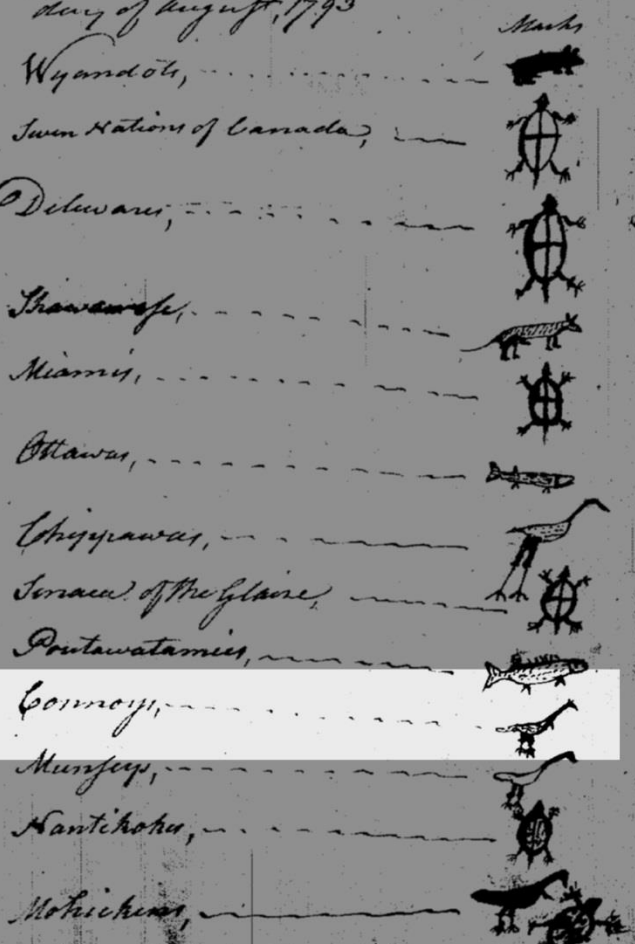 day of August, 1793
Marks
Wyandots,
Seven Nations of Canada,
Delawares,
Shawanese,
Miamis,
Ottawas,
Chippawas,
Senecas of the Glaise,
Poutawatamies,
Connoys,
Munseys,
Nantikokes,
Mohickens,